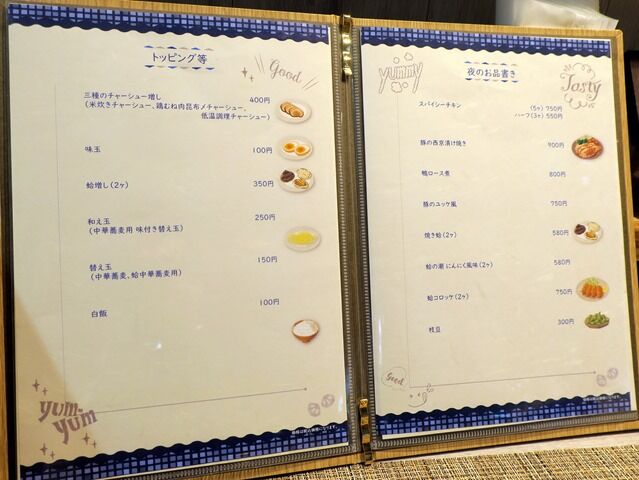 トッピング等
Good
三種のチャーシュー増し 400円
(米炊きチャーシュー、鶏むね肉昆布〆チャーシュー、
低温調理チャーシュー)
味玉 100円
蛤増し(2ヶ) 350円
和え玉 250円
(中華蕎麦用 味付き替え玉)
替え玉 150円
(中華蕎麦、蛤中華蕎麦用)
白飯 100円
yum-yum
価格は税込価格になります。
yummy
夜のお品書き
Tasty
スパイシーチキン (5ヶ) 750円
ハーフ(3ヶ) 550円
豚の西京漬け焼き 900円
鴨ロース煮 800円
豚のユッケ風 750円
焼き蛤(2ヶ) 580円
蛤の潮 にんにく風味(2ヶ) 580円
蛤コロッケ(2ヶ) 750円
枝豆 300円
Good
価格は税込価格になります。